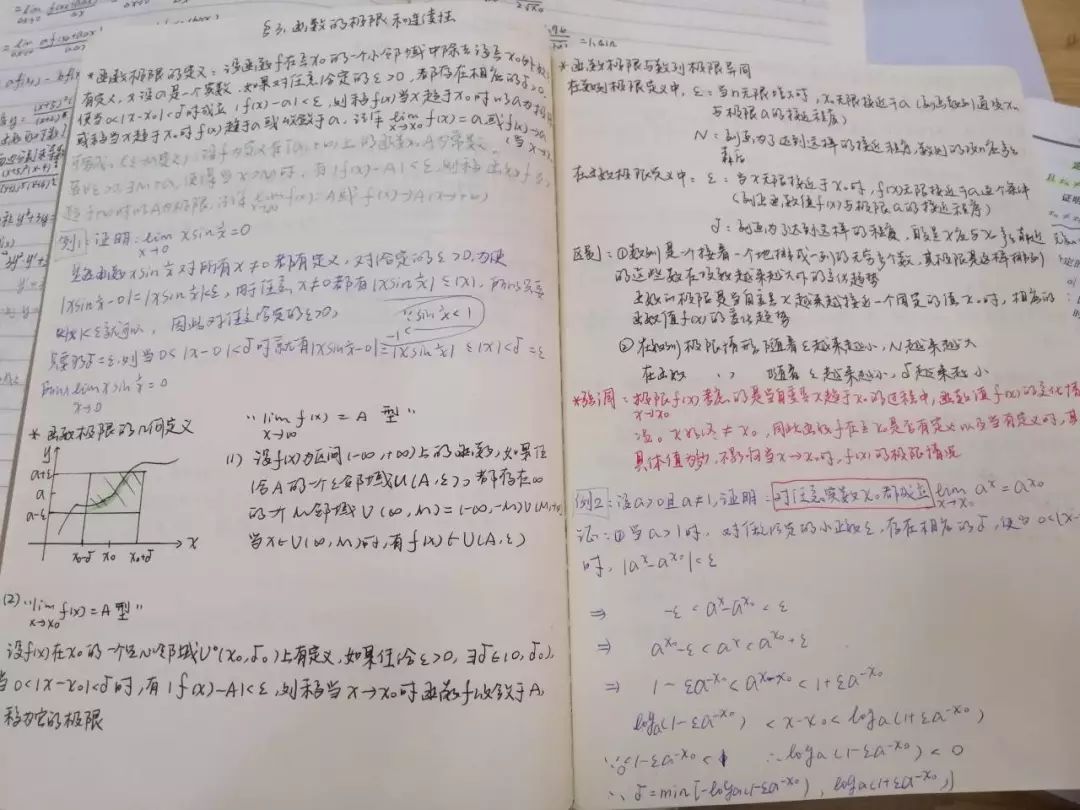 §3. 函数的极限和连续性
*函数极限的定义：设函数f在点x₀的一个小邻域中除去该点x₀外都
有定义，又设a是一个实数，如果对任意给定的ε>0，都存在相应的δ>0，
使当0<|x-x₀|<δ时成立 |f(x)-a|<ε，则称f(x)当x趋于x₀时以a为极限
或称当x趋于x₀时f(x)趋于a或收敛于a，记作 lim x→x₀ f(x)=a 或f(x)→a
(当x→x₀
使得当x>M时，有|f(x)-A|<ε，则称函数f当
例1：证明：lim x→0 x sin 1/x =0
x sin 1/x 对所有x≠0都有定义，对给定的ε>0，为使
|x sin 1/x -0|=|x sin 1/x|<ε，由于任意x≠0都有|x sin 1/x|≤|x|，所以只要
|x|<ε就可以，因此对任意给定的ε>0，
sin 1/x <1
-1<
只要δ=ε，则当0<|x-0|<δ时就有|x sin 1/x -0|=|x sin 1/x| ≤|x|<δ=ε
lim x→0 x sin 1/x =0
*函数极限的几何定义
y
a+ε
a
a-ε
x₀-δ x₀ x₀+δ x
"lim x→∞ f(x)=A 型"
(1) 设f(x)为区间(-∞,+∞)上的函数，如果任
给A的一个ε邻域U(A,ε)，都存在∞
的一个M邻域U(∞,M)=(-∞,-M)∪(M,+∞)
当x∈U(∞,M)时，有f(x)∈U(A,ε)
(2) "lim x→x₀ f(x)=A 型"
设f(x)在x₀的一个空心邻域U°(x₀,δ₀)上有定义，如果任给ε>0，∃δ∈(0,δ₀)，
当0<|x-x₀|<δ时，有|f(x)-A|<ε，则称当x→x₀时函数f收敛于A，
称为它的极限
*函数极限与数列极限异同
在数列极限定义中，ε：当n无限增大时，xₙ无限接近于a（刻画数列通项xₙ
与极限a的接近程度）
N：刻画为了达到这样的接近程度，数列的项应
在函数极限定义中：ε：当x无限接近于x₀时，f(x)无限接近于a这个事件
（刻画函数值f(x)与极限a的接近程度）
δ：刻画为了达到这样的程度，自变量x应与x₀多靠近
区别：①数列是一个接着一个地排成一列的无穷多个数，其极限是这样排列
的这些数在项数越来越大下的变化趋势
函数的极限是当自变量x越来越接近一个固定的值x₀时，相应的
函数值f(x)的变化趋势
②在数列极限情形，随着ε越来越小，N越来越大
在函数 〃 随着ε越来越小，δ越来越小
*强调：极限 lim x→x₀ f(x)考虑的是当自变量x趋于x₀的过程中，函数值f(x)的变化情
况。x始终≠x₀，因此函数f在点x₀是否有定义以及当有定义时，其
具体值为何，不影响当x→x₀时，f(x)的极限情况
例2：设a>0且a≠1，证明：对任意实数x₀都成立 lim x→x₀ aˣ=aˣ⁰
证：①当a>1时，对任给定的小正数ε，存在相应的δ，使当0<|x-
时，|aˣ-aˣ⁰|<ε
⇒ -ε<aˣ-aˣ⁰<ε
⇒ aˣ⁰-ε<aˣ<aˣ⁰+ε
⇒ 1-εa⁻ˣ⁰<aˣ⁻ˣ⁰<1+εa⁻ˣ⁰
logₐ(1-εa⁻ˣ⁰)<x-x₀<logₐ(1+εa⁻ˣ⁰)
∵0<1-εa⁻ˣ⁰<1 ∴logₐ(1-εa⁻ˣ⁰)<0
∴δ=min[-logₐ(1-εa⁻ˣ⁰)，logₐ(1+εa⁻ˣ⁰)]